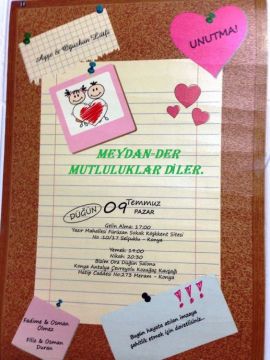 Ayşe & Oğuzhan Lütfi
UNUTMA!
MEYDAN-DER
MUTLULUKLAR DİLER.
DÜĞÜN 09 Temmuz
PAZAR
Gelin Alma: 17:00
Yazır Mahallesi Parksan Sokak Köşkkent Sitesi
No :10/17 Selçuklu - Konya
Yemek: 19:00
Nikah: 20:30
Bizim Ora Düğün Salonu
Konya Antalya Çevreyolu Kozağaç Kavşağı
Hatip Caddesi No:273 Meram - Konya
Fadime & Osman
Ölmez
Filiz & Osman
Duran
!!!
Bugün hayata atılan imzaya
şahitlik etmek için davetlisiniz...